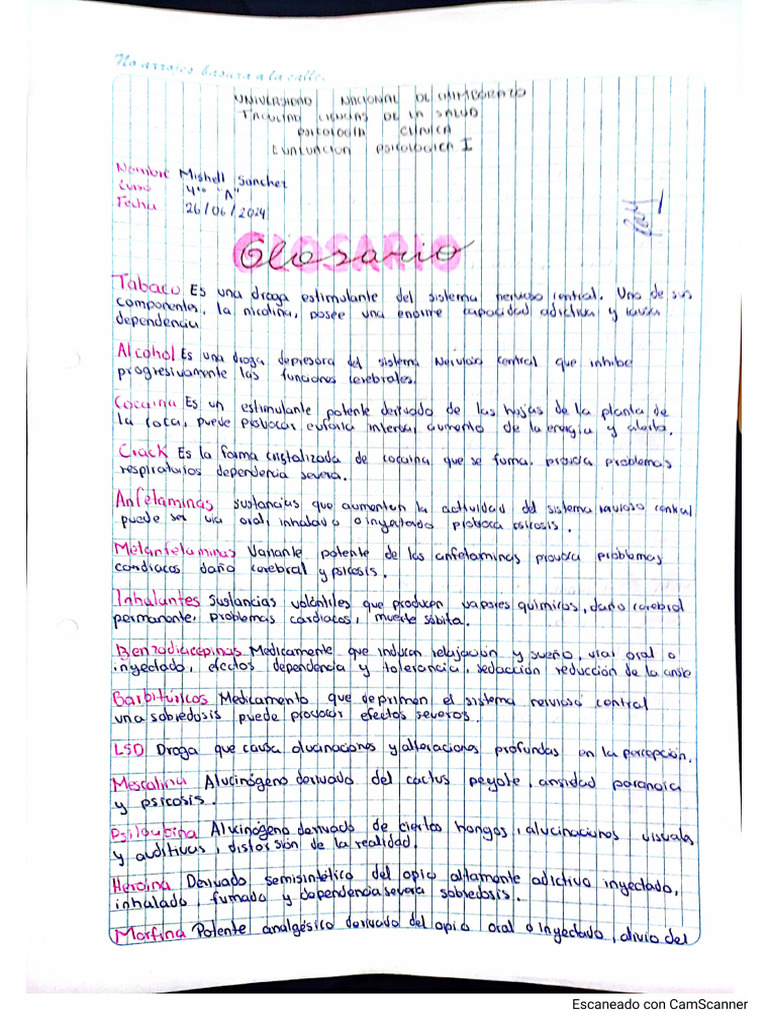 No arrojes basura a la calle.
UNIVERSIDAD NACIONAL DE CHIMBORAZO
FACULTAD CIENCIAS DE LA SALUD
PSICOLOGÍA CLINICA
EVALUACION PSICOLOGICA I
Nombre Mishell Sanchez
Curso 4to "A"
Fecha 26/06/2024
GLOSARIO
Glosario
Tabaco Es una droga estimulante del sistema nervioso central. Uno de sus
componentes, la nicotina, posee una enorme capacidad adictiva y causa
dependencia
Alcohol Es una droga depresora del sistema Nervicio central que inhibe
progresivamente las funciones cerebrales.
Cocaina Es un estimulante potente derivado de las hojas de la planta de
la coca, puede provocar euforia intensa, aumento de la energia y alerta.
Crack Es la forma cristalizada de cocaina que se fuma. provoca problemas
respiratorios dependencia severa.
Anfetaminas sustancias que aumentan la actividad del sistema nervioso central
puede ser via oral, inhalado o inyectado provoca psicosis.
Metanfetaminas Variante potente de las anfetaminas provoca problemas
cardiacos daño cerebral y psicosis.
Inhalantes Sustancias volántiles que producen vapores químicos, daño cerebral
permanente, problemas cardíacos, muerte súbita.
Benzodiacepinas Medicamente que inducen relajación y sueño, vias oral o
inyectado, efectos dependencia y tolerancia, sedacción reducción de la ansie
Barbituricos Medicamento que deprimen el sistema nervioso central
una sobredosis puede provocar efectos severos.
LSD Droga que causa alucinaciones y alteraciones profundas en la percepción.
Mescalina Alucinógeno derivado del cactus peyote, ansidad paranoia
y psicosis.
Psilocibina Alucinógeno derivado de ciertos hongos, alucinaciones visuales
y auditivas, distorsión de la realidad.
Heroina Derivado semisintético del opio altamente adictivo inyectado,
inhalado, fumado y dependencia severa sobredosis.
Morfina Potente analgésico derivado del opio oral o inyectado, alivio del
Escaneado con CamScanner